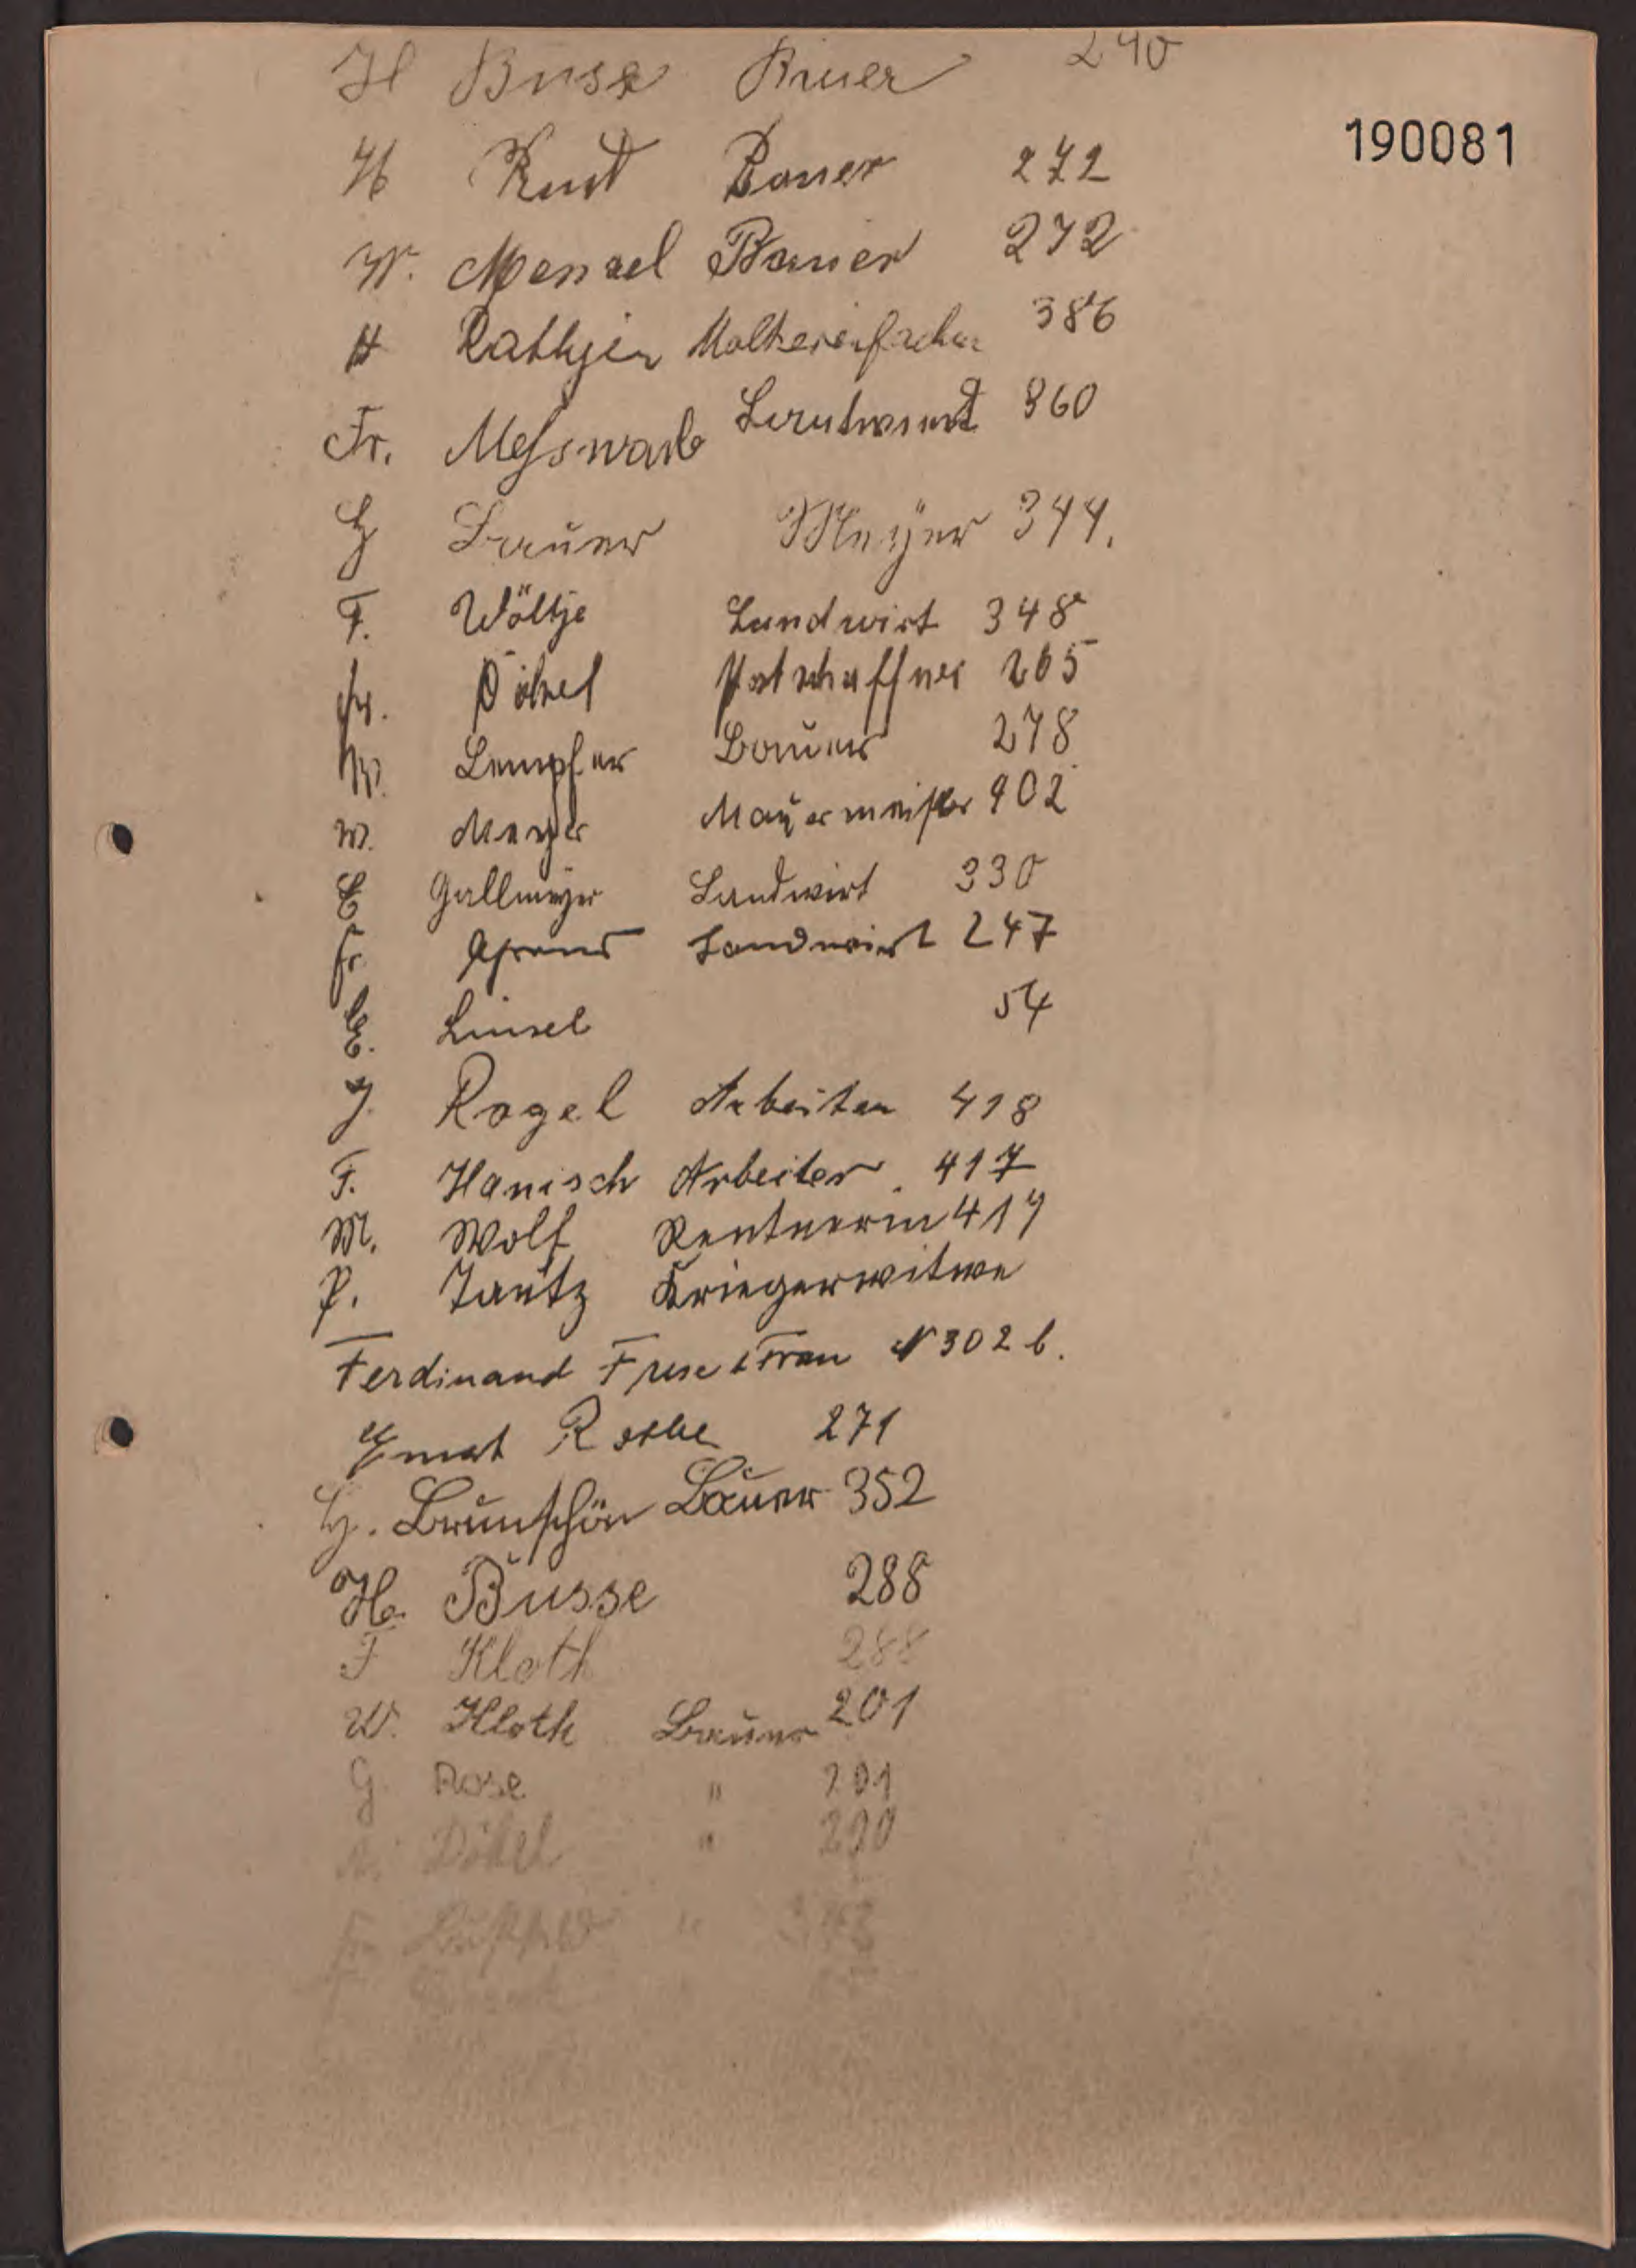 H Busse Bauer 240
190081
H Knust Bauer 272
W. Menzel Bauer 272
H Rathjen Molkereifachm 386
Fr. Meßwarb Landwirt 360
H Bauer Meyer 344.
F. Wöltje Landwirt 348
Fr. Döbel Postschaffner 265
W. Lampfer Bauer 278
W. Meyer Mauermeister 402
E Gallmeyer Landwirt 330
Fr. Landwirt 247
E. Linsel 54
J. Rogel Arbeiter 418
F. Hanisch Arbeiter 417
M. Wolf Rentnerin 417
P. Jautz Kriegerwitwe
Ferdinand Frese & Frau N 302 b.
Ernst Rothe 271
H. Brunschön Bauer 352
H. Busse 288
F Kloth 288
W. Kloth Bauer 201
G. Rose " 201
Döbel " 290
Fr "